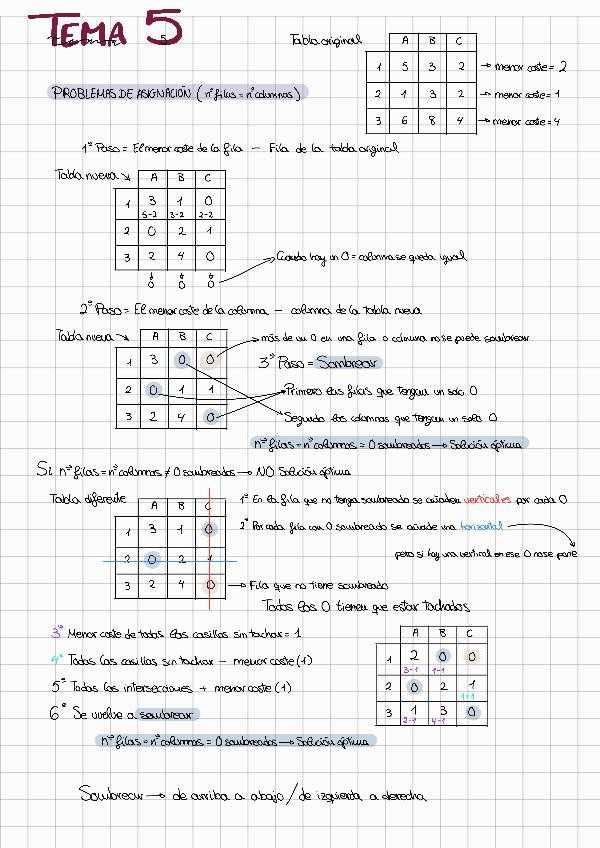 TEMA 5
Tabla original
A B C
1 5 3 2 → menor coste = 2
2 1 3 2 → menor coste = 1
3 6 8 4 → menor coste = 4
PROBLEMAS DE ASIGNACIÓN (nº filas = nº columnas)
1º Paso = El menor coste de la fila - Fila de la tabla original
Tabla nueva
A B C
1 3 1 0
5-2 3-2 2-2
2 0 2 1
3 2 4 0
0 0 0
Cuando hay un 0 = columna se queda igual
2º Paso = El menor coste de la columna - columna de la tabla nueva
Tabla nueva
A B C
1 3 0 0
2 0 1 1
3 2 4 0
más de un 0 en una fila o columna no se puede sombrear
3º Paso = Sombrear
Primero las filas que tengan un solo 0
Segundo las columnas que tengan un solo 0
nº filas = nº columnas = 0 sombreados → Solución óptima
Si nº filas = nº columnas ≠ 0 sombreados → NO Solución óptima
Tabla diferente
A B C
1 3 1 0
2 0 2 1
3 2 4 0
1º En la fila que no tenga sombreado se añaden verticales por cada 0
2º Por cada fila con 0 sombreado se añade una horizontal
pero si hay una vertical en ese 0 no se pone
→ Fila que no tiene sombreado
Todos los 0 tienen que estar tachados
3º Menor coste de todas las casillas sin tachar = 1
4º Todas las casillas sin tachar - menor coste (1)
5º Todas las intersecciones + menor coste (1)
6º Se vuelve a sombrear
A B C
1 2 0 0
3-1 1-1
2 0 2 1
1+1
3 1 3 0
2-1 4-1
nº filas = nº columnas = 0 sombreados → Solución óptima
Sombrear → de arriba a abajo / de izquierda a derecha